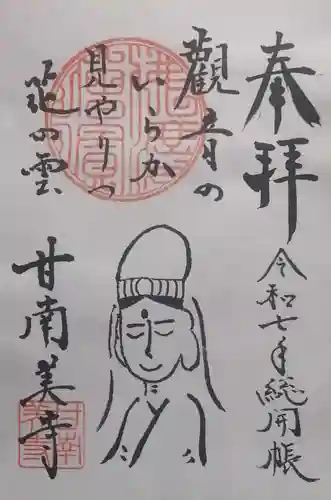 奉拝
令和七年総開帳
觀音の
いらか
見やりつ
花の雲
甘南美寺